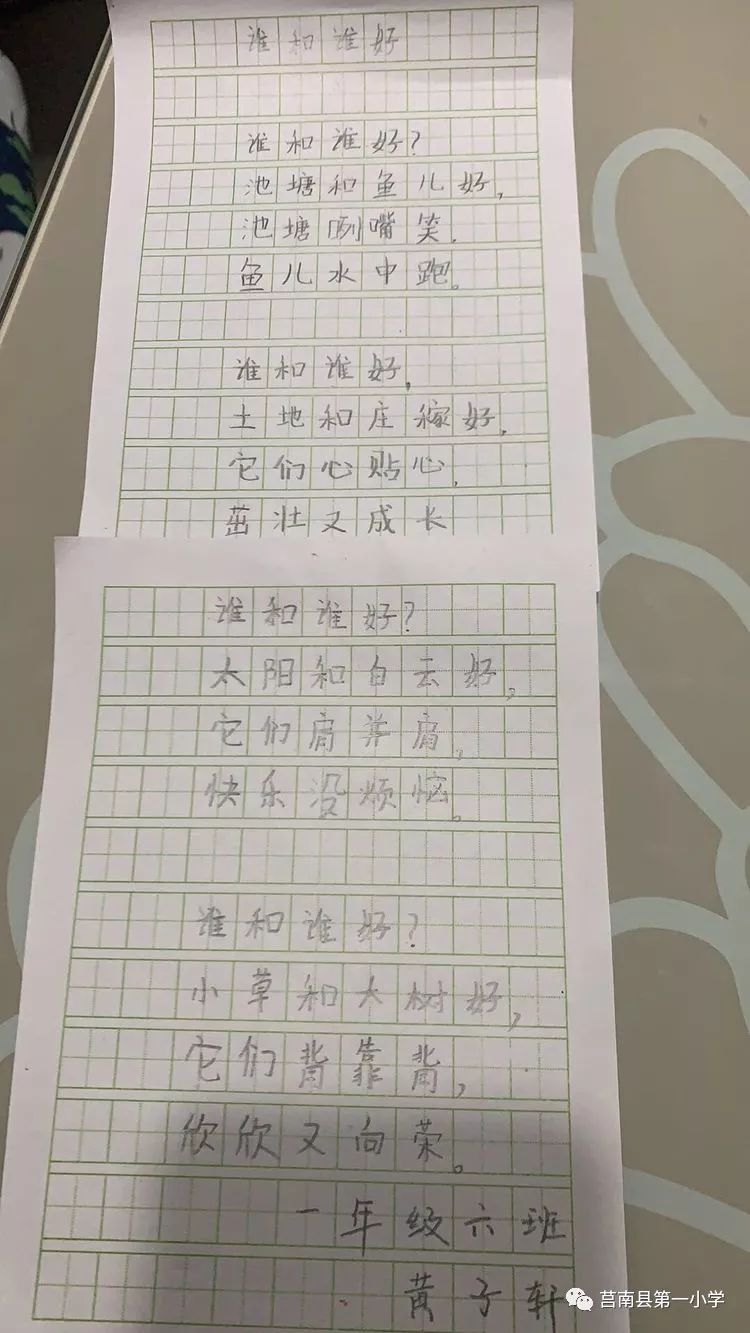 谁和谁好
谁和谁好？
池塘和鱼儿好，
池塘咧嘴笑，
鱼儿水中跑。
谁和谁好，
土地和庄稼好，
它们心贴心，
茁壮又成长
谁和谁好？
太阳和白云好，
它们肩并肩，
快乐没烦恼。
谁和谁好？
小草和大树好，
它们背靠背，
欣欣又向荣。
一年级六班
黄子轩
莒南县第一小学